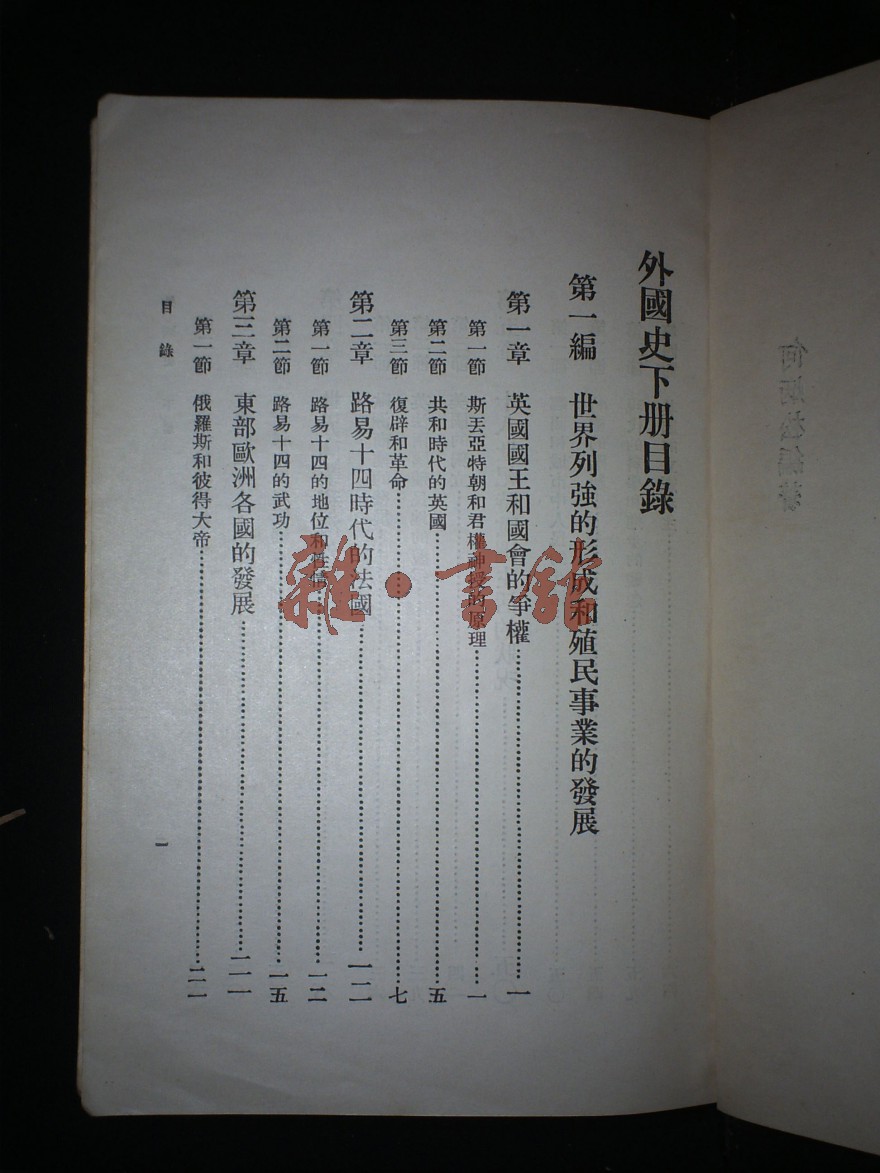 外國史下册目錄
第一編 世界列強的形成和殖民事業的發展
第一章 英國國王和國會的爭權……一
第一節 斯丟亞特朝和君權神授的原理……一
第二節 共和時代的英國……五
第三節 復辟和革命……七
第二章 路易十四時代的法國……一二
第一節 路易十四的地位和性情……一二
第二節 路易十四的武功……一五
第三章 東部歐洲各國的發展……二一
第一節 俄羅斯和彼得大帝……二一
目錄 一
雜·書館